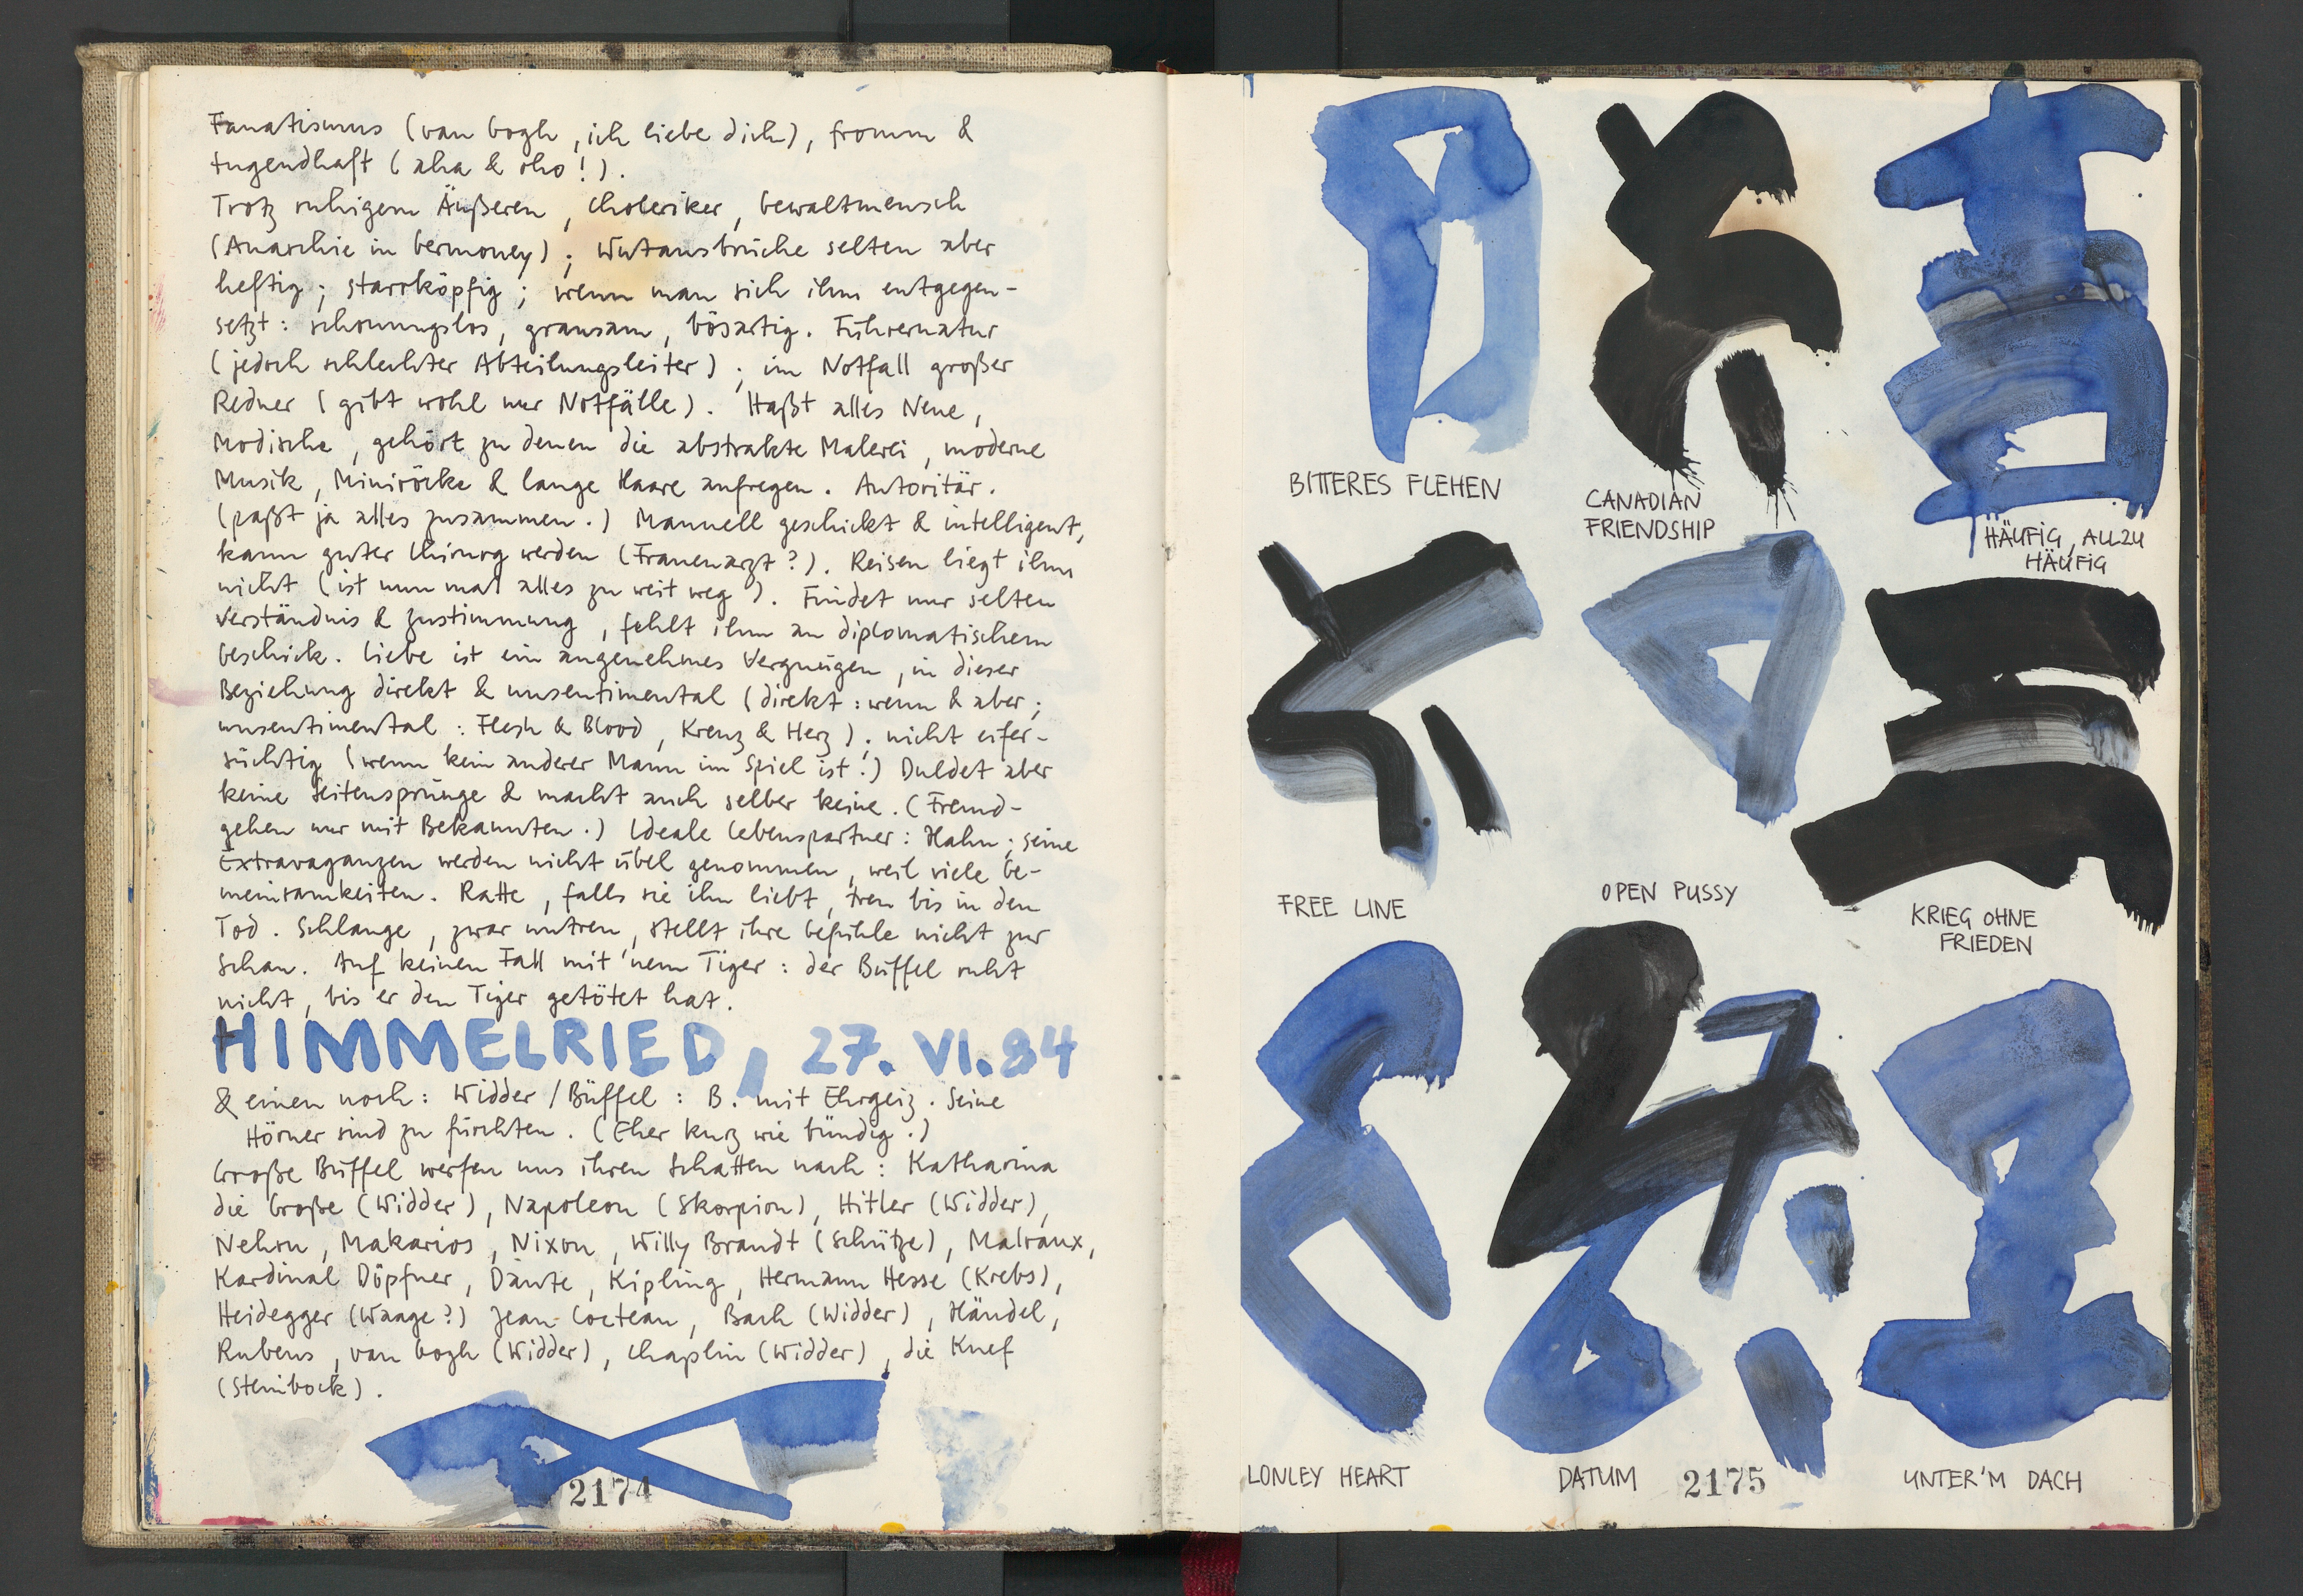 Fanatismus (van Gogh, ich liebe dich), fromm &
tugendhaft (aha & oho!).
Trotz ruhigem Äußeren, Choleriker, Gewaltmensch
(Anarchie in Germoney); Wutausbrüche selten aber
heftig; starrköpfig; wenn man sich ihm entgegen-
setzt: schonungslos, grausam, bösartig. Führernatur
(jedoch schlechter Abteilungsleiter); im Notfall großer
Redner (gibt wohl nur Notfälle). Haßt alles Neue,
Modische, gehört zu denen die abstrakte Malerei, moderne
Musik, Miniröcke & lange Haare aufregen. Autoritär.
(paßt ja alles zusammen.) Manuell geschickt & intelligent,
kann guter Chirurg werden (Frauenarzt?). Reisen liegt ihm
nicht (ist nun mal alles zu weit weg). Findet nur selten
Verständnis & Zustimmung, fehlt ihm an diplomatischem
Geschick. Liebe ist ein angenehmes Vergnügen, in dieser
Beziehung direkt & unsentimental (direkt: wenn & aber;
unsentimental: Flesh & Blood, Kreuz & Herz); nicht eifer-
süchtig (wenn kein anderer Mann im Spiel ist!) Duldet aber
keine Seitensprünge & macht auch selber keine. (Fremd-
gehen nur mit Bekannten.) Ideale Lebenspartner: Hahn; seine
Extravaganzen werden nicht übel genommen, weil viele Ge-
meinsamkeiten. Ratte, falls sie ihn liebt, treu bis in den
Tod. Schlange, zwar untreu, stellt ihre Gefühle nicht zur
Schau. Auf keinen Fall mit 'nem Tiger: der Büffel ruht
nicht, bis er den Tiger getötet hat.
HIMMELRIED, 27. VI. 84
& einen noch: Widder/Büffel: B. mit Ehrgeiz. Seine
Hörner sind zu fürchten. (Eher kurz wie bündig.)
Große Büffel werfen uns ihren Schatten nach: Katharina
die Große (Widder), Napoleon (Skorpion), Hitler (Widder),
Nehru, Makarios, Nixon, Willy Brandt (Schütze), Malraux,
Kardinal Döpfner, Dante, Kipling, Hermann Hesse (Krebs),
Heidegger (Waage?) Jean Cocteau, Bach (Widder), Händel,
Rubens, van Gogh (Widder), Chaplin (Widder), die Knef
(Steinbock).
2174
BITTERES FLEHEN
CANADIAN
FRIENDSHIP
HÄUFIG, ALLZU
HÄUFIG
FREE LINE
OPEN PUSSY
KRIEG OHNE
FRIEDEN
LONLEY HEART
DATUM
2175
UNTER'M DACH